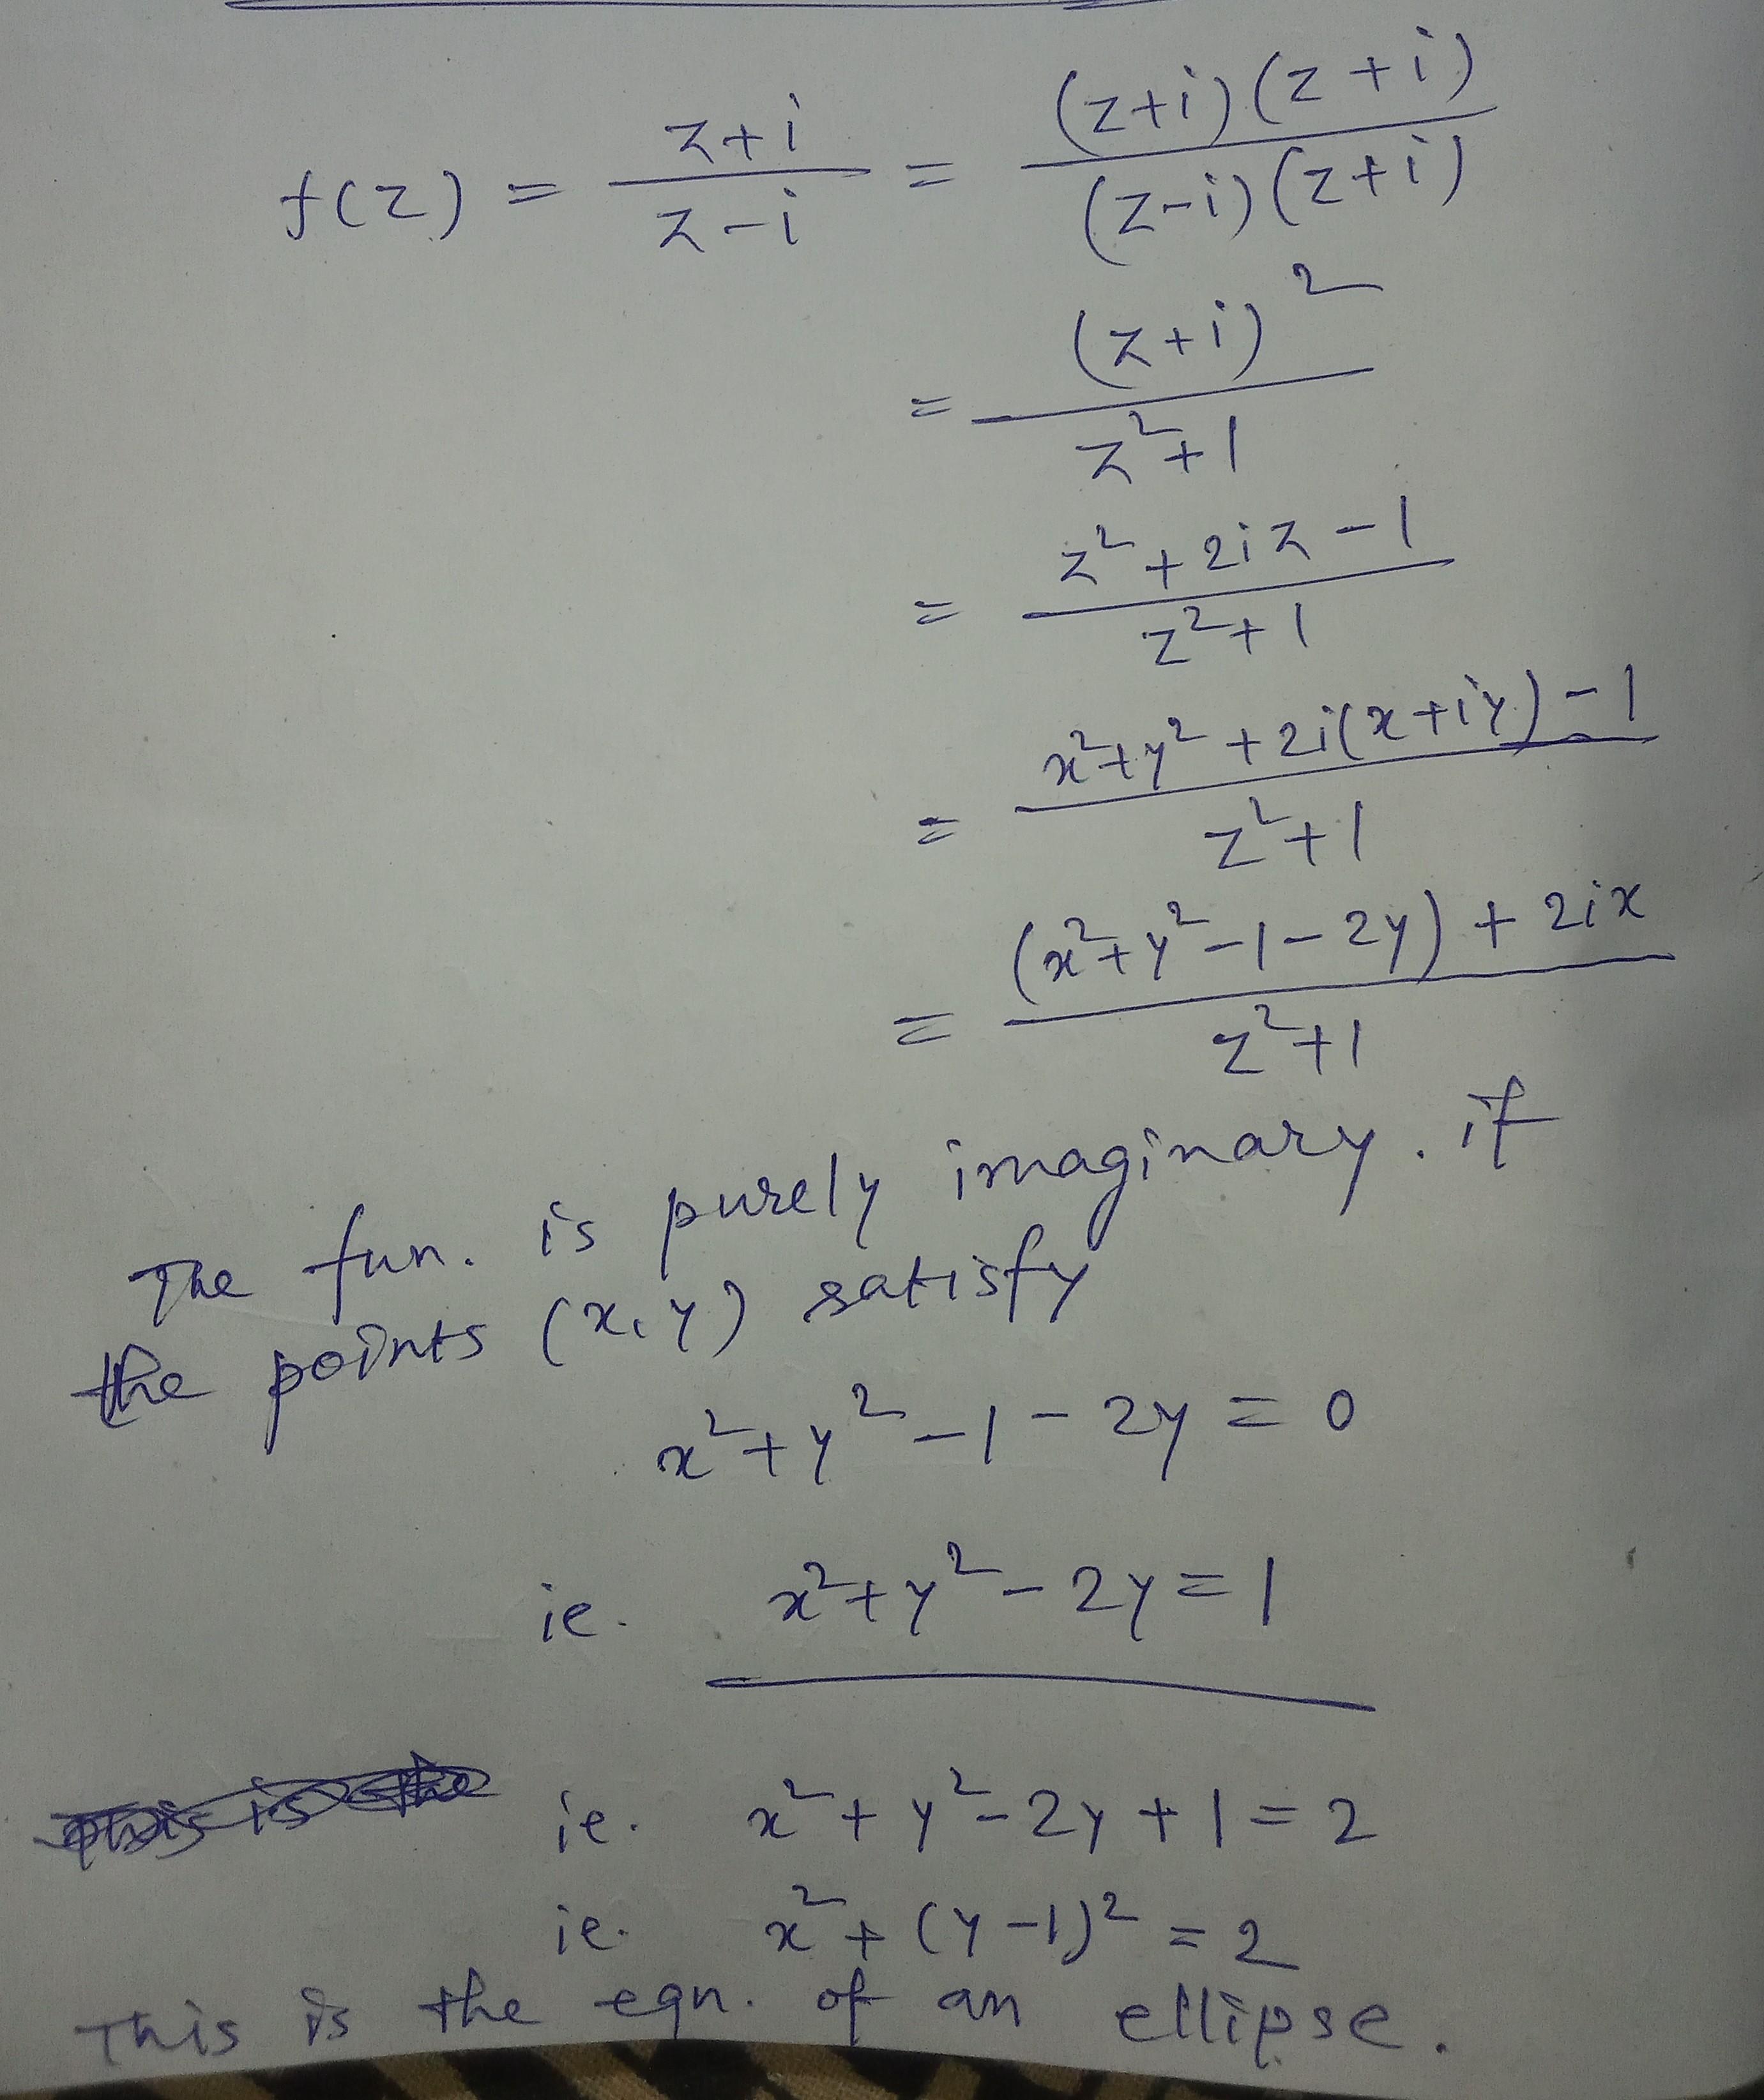 f(z) = (z+i)/(z-i) = ((z+i)(z+i))/((z-i)(z+i))
= (z+i)²/(z²+1)
= (z²+2iz-1)/(z²+1)
= (x²+y²+2i(x+iy)-1)/(z²+1)
= ((x²+y²-1-2y)+2ix)/(z²+1)
The fun. is purely imaginary. if
the points (x,y) satisfy
x²+y²-1-2y = 0
ie. x²+y²-2y=1
This is the ie. x²+y²-2y+1=2
ie. x²+(y-1)² = 2
This is the eqn. of an ellipse.